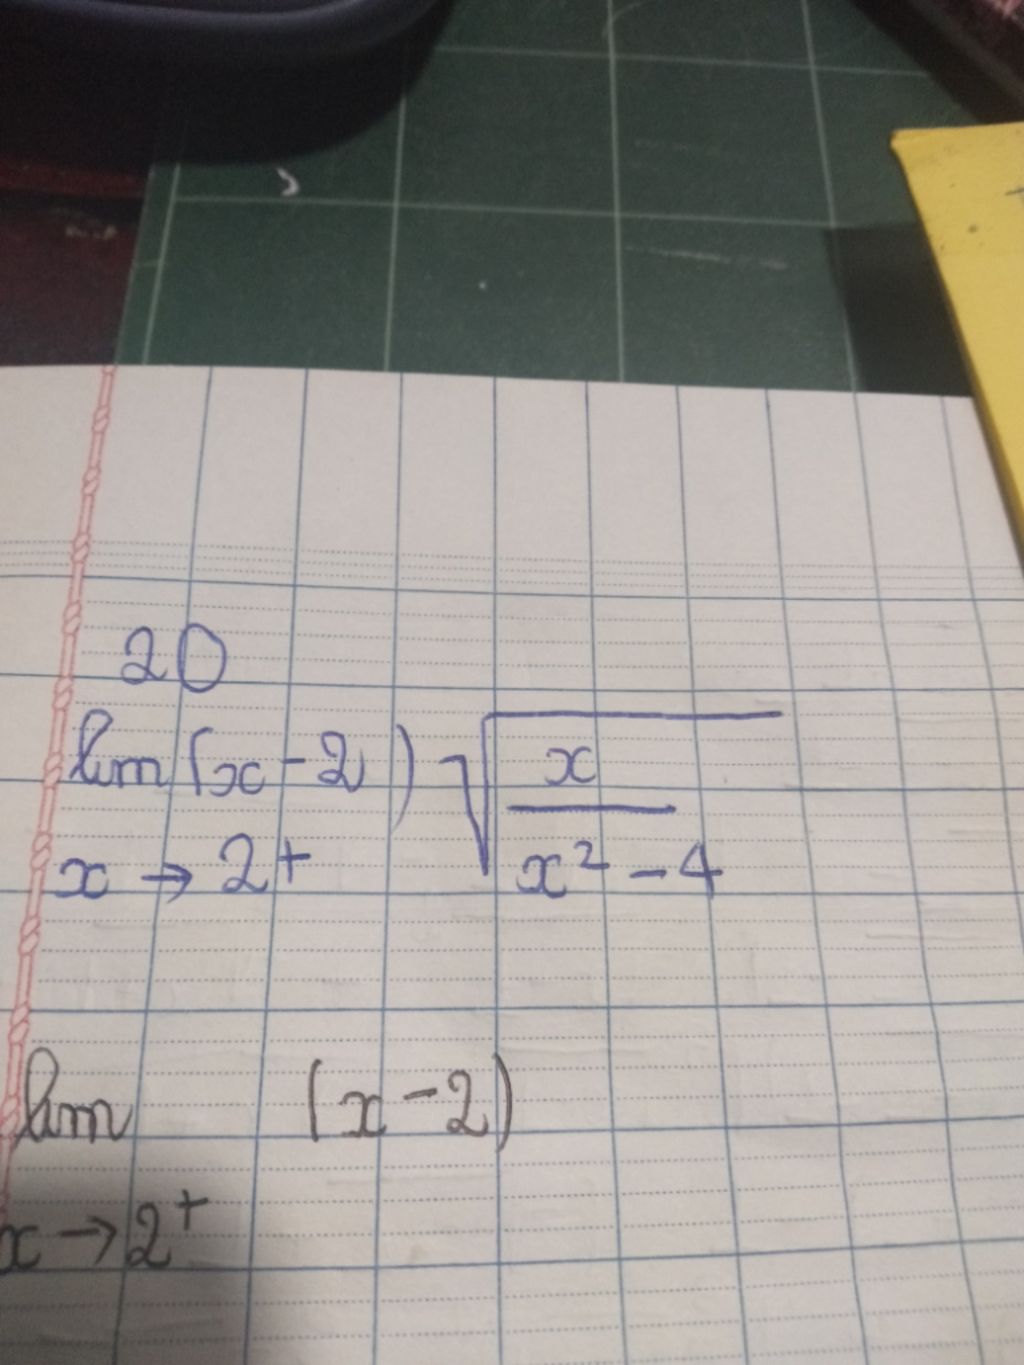 20
lim (x - 2) √(x / (x² - 4))
x → 2⁺
lim (x - 2)
x → 2⁺